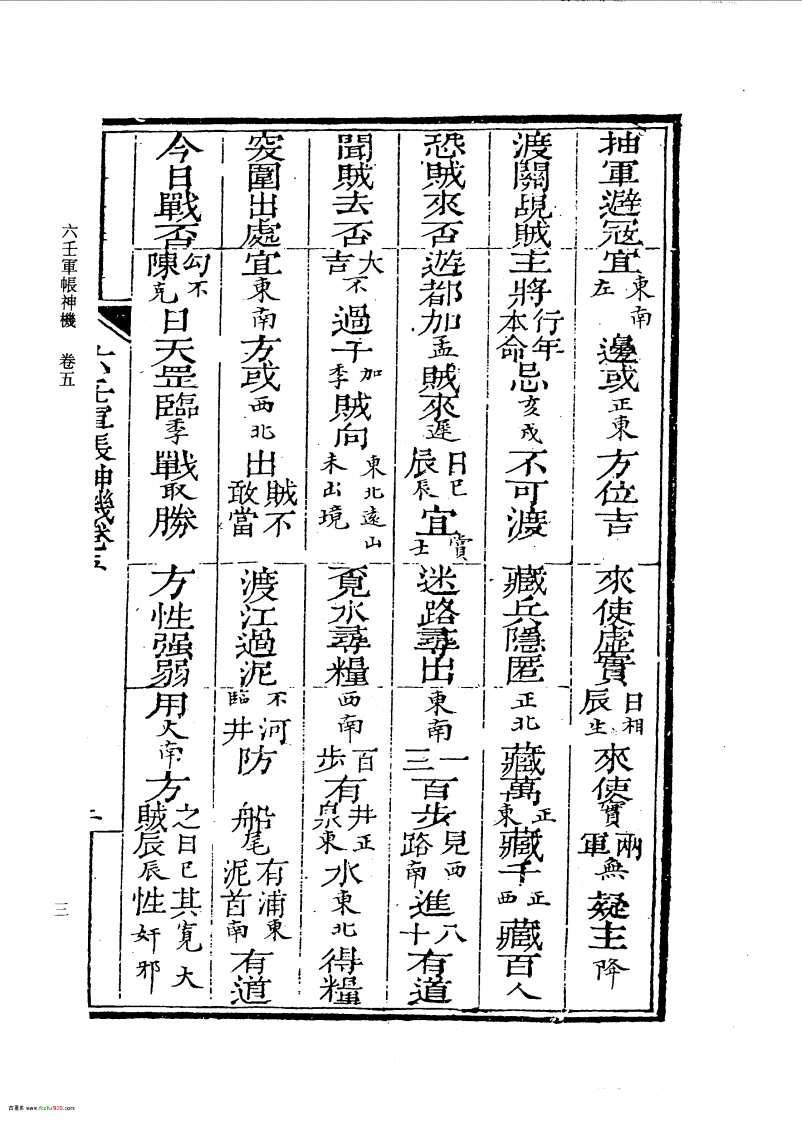 抽軍避冦宜東南左邊或正東方位吉 來使虛實日相辰生來使實兩軍無疑主降
渡關覘賊主將行年本命忌亥戌不可渡 藏兵隱匿正北藏萬正東藏千正西藏百人
恐賊來否遊都加孟賊來遲日巳辰辰宜賞士 迷路尋出東南一三百步見西路南進八十有道
聞賊去否大不吉過于加季賊向東北遠山未出境 覓水尋糧西南百步有井正泉東水東北得糧
突圍出處宜東南方或西北出賊不敢當 渡江過泥不臨河井防船尾有浦東泥首南有道
今日戰否勾不陳克日天罡臨季戰取勝 方性强弱用大南方之日巳其寬大賊辰辰性奸邪
六壬軍帳神機卷五
二
六壬軍帳神機 卷五
三
古書庫 www.fozhu920.com